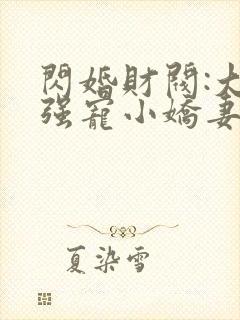 閃婚財閥:大
强寵小嬌妻
夏染雪